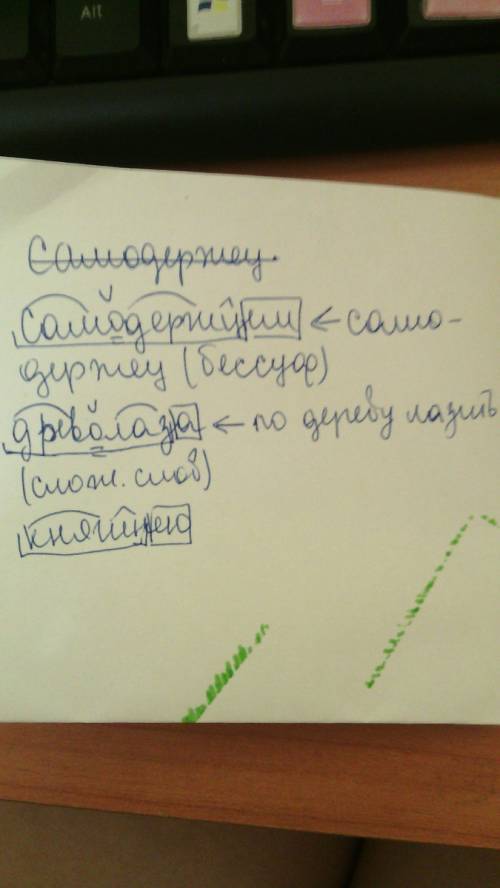 Alt
Самодержец.
самодержцем ← само-
держец (бессуф)
древолаза ← по дереву лазить
(слож. слов)
княгинею